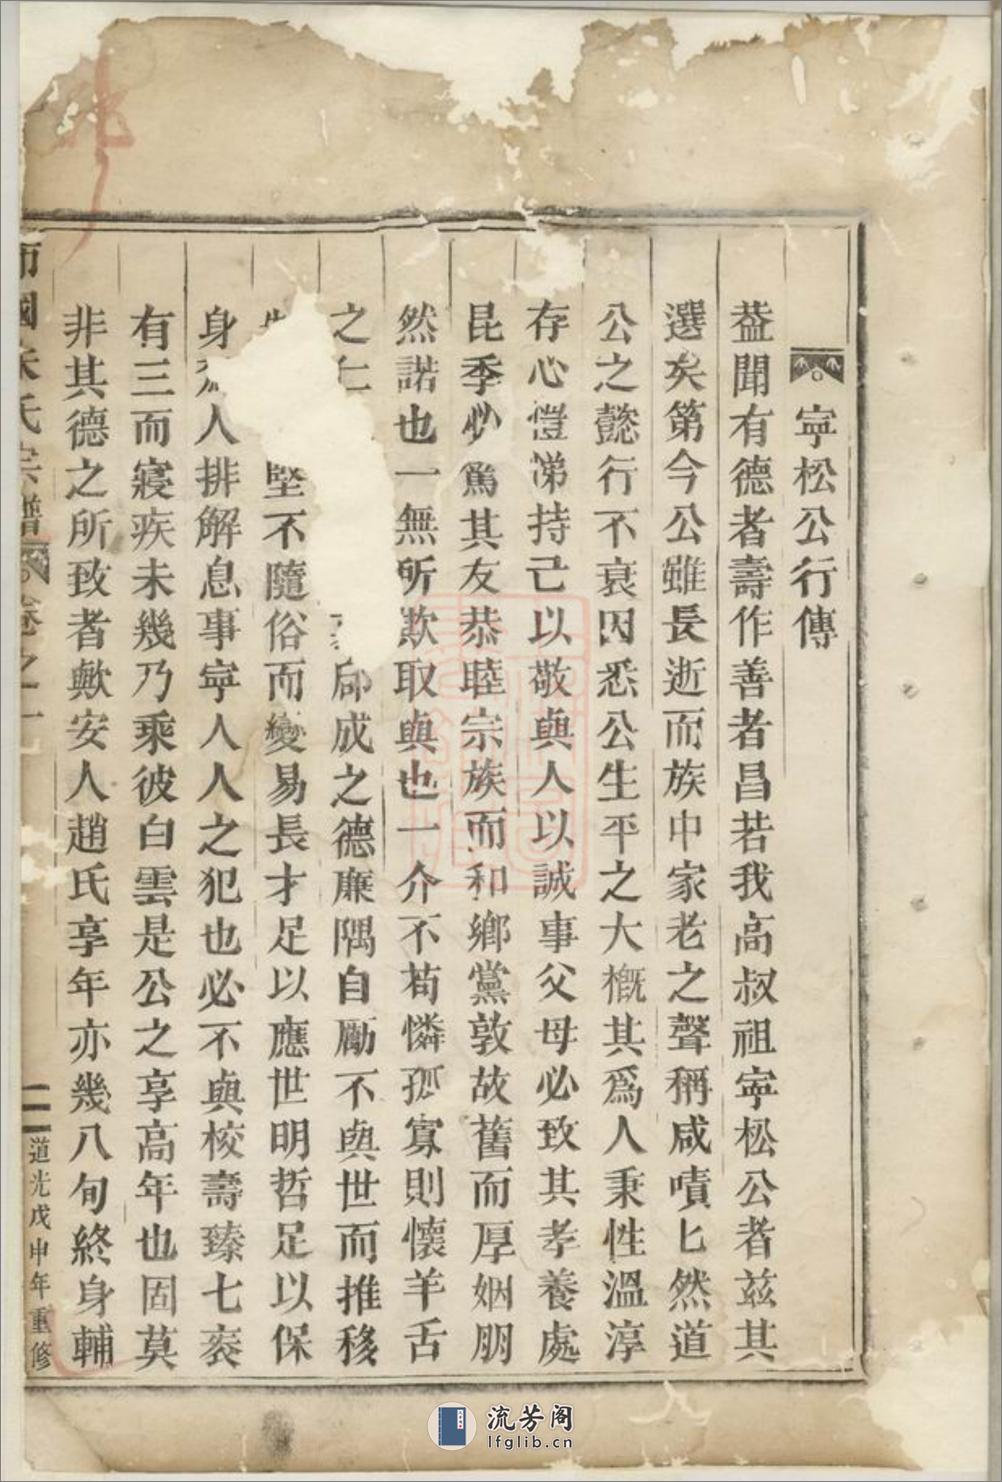 寧松公行傳
葢聞有德者壽作善者昌若我高叔祖寧松公者茲其
選矣第今公雖長逝而族中家老之聲稱咸嘖匕然道
公之懿行不衰因悉公生平之大概其爲人秉性溫淳
存心愷悌持己以敬與人以誠事父母必致其孝養處
昆季必篤其友恭睦宗族而和鄉黨敦故舊而厚姻朋
然諾也一無所欺取與也一介不苟憐孤寡則懷羊舌
之仁成之德廉隅自勵不與世而推移
堅不隨俗而變易長才足以應世明哲足以保
身爲人排解息事寧人人之犯也必不與校壽臻七袠
有三而寢疾未幾乃乘彼白雲是公之享高年也固莫
非其德之所致者歟安人趙氏享年亦幾八旬終身輔
國氏宗譜 卷之十
二 道光戊申年重修
流芳阁
lfglib.cn